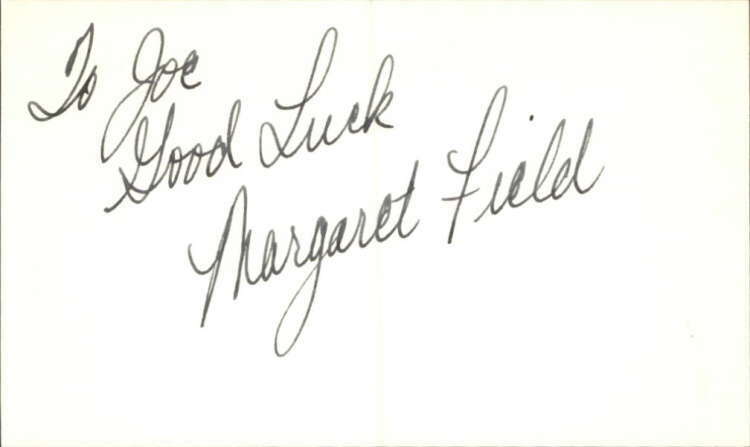 To Joe
Good Luck
Margaret Field